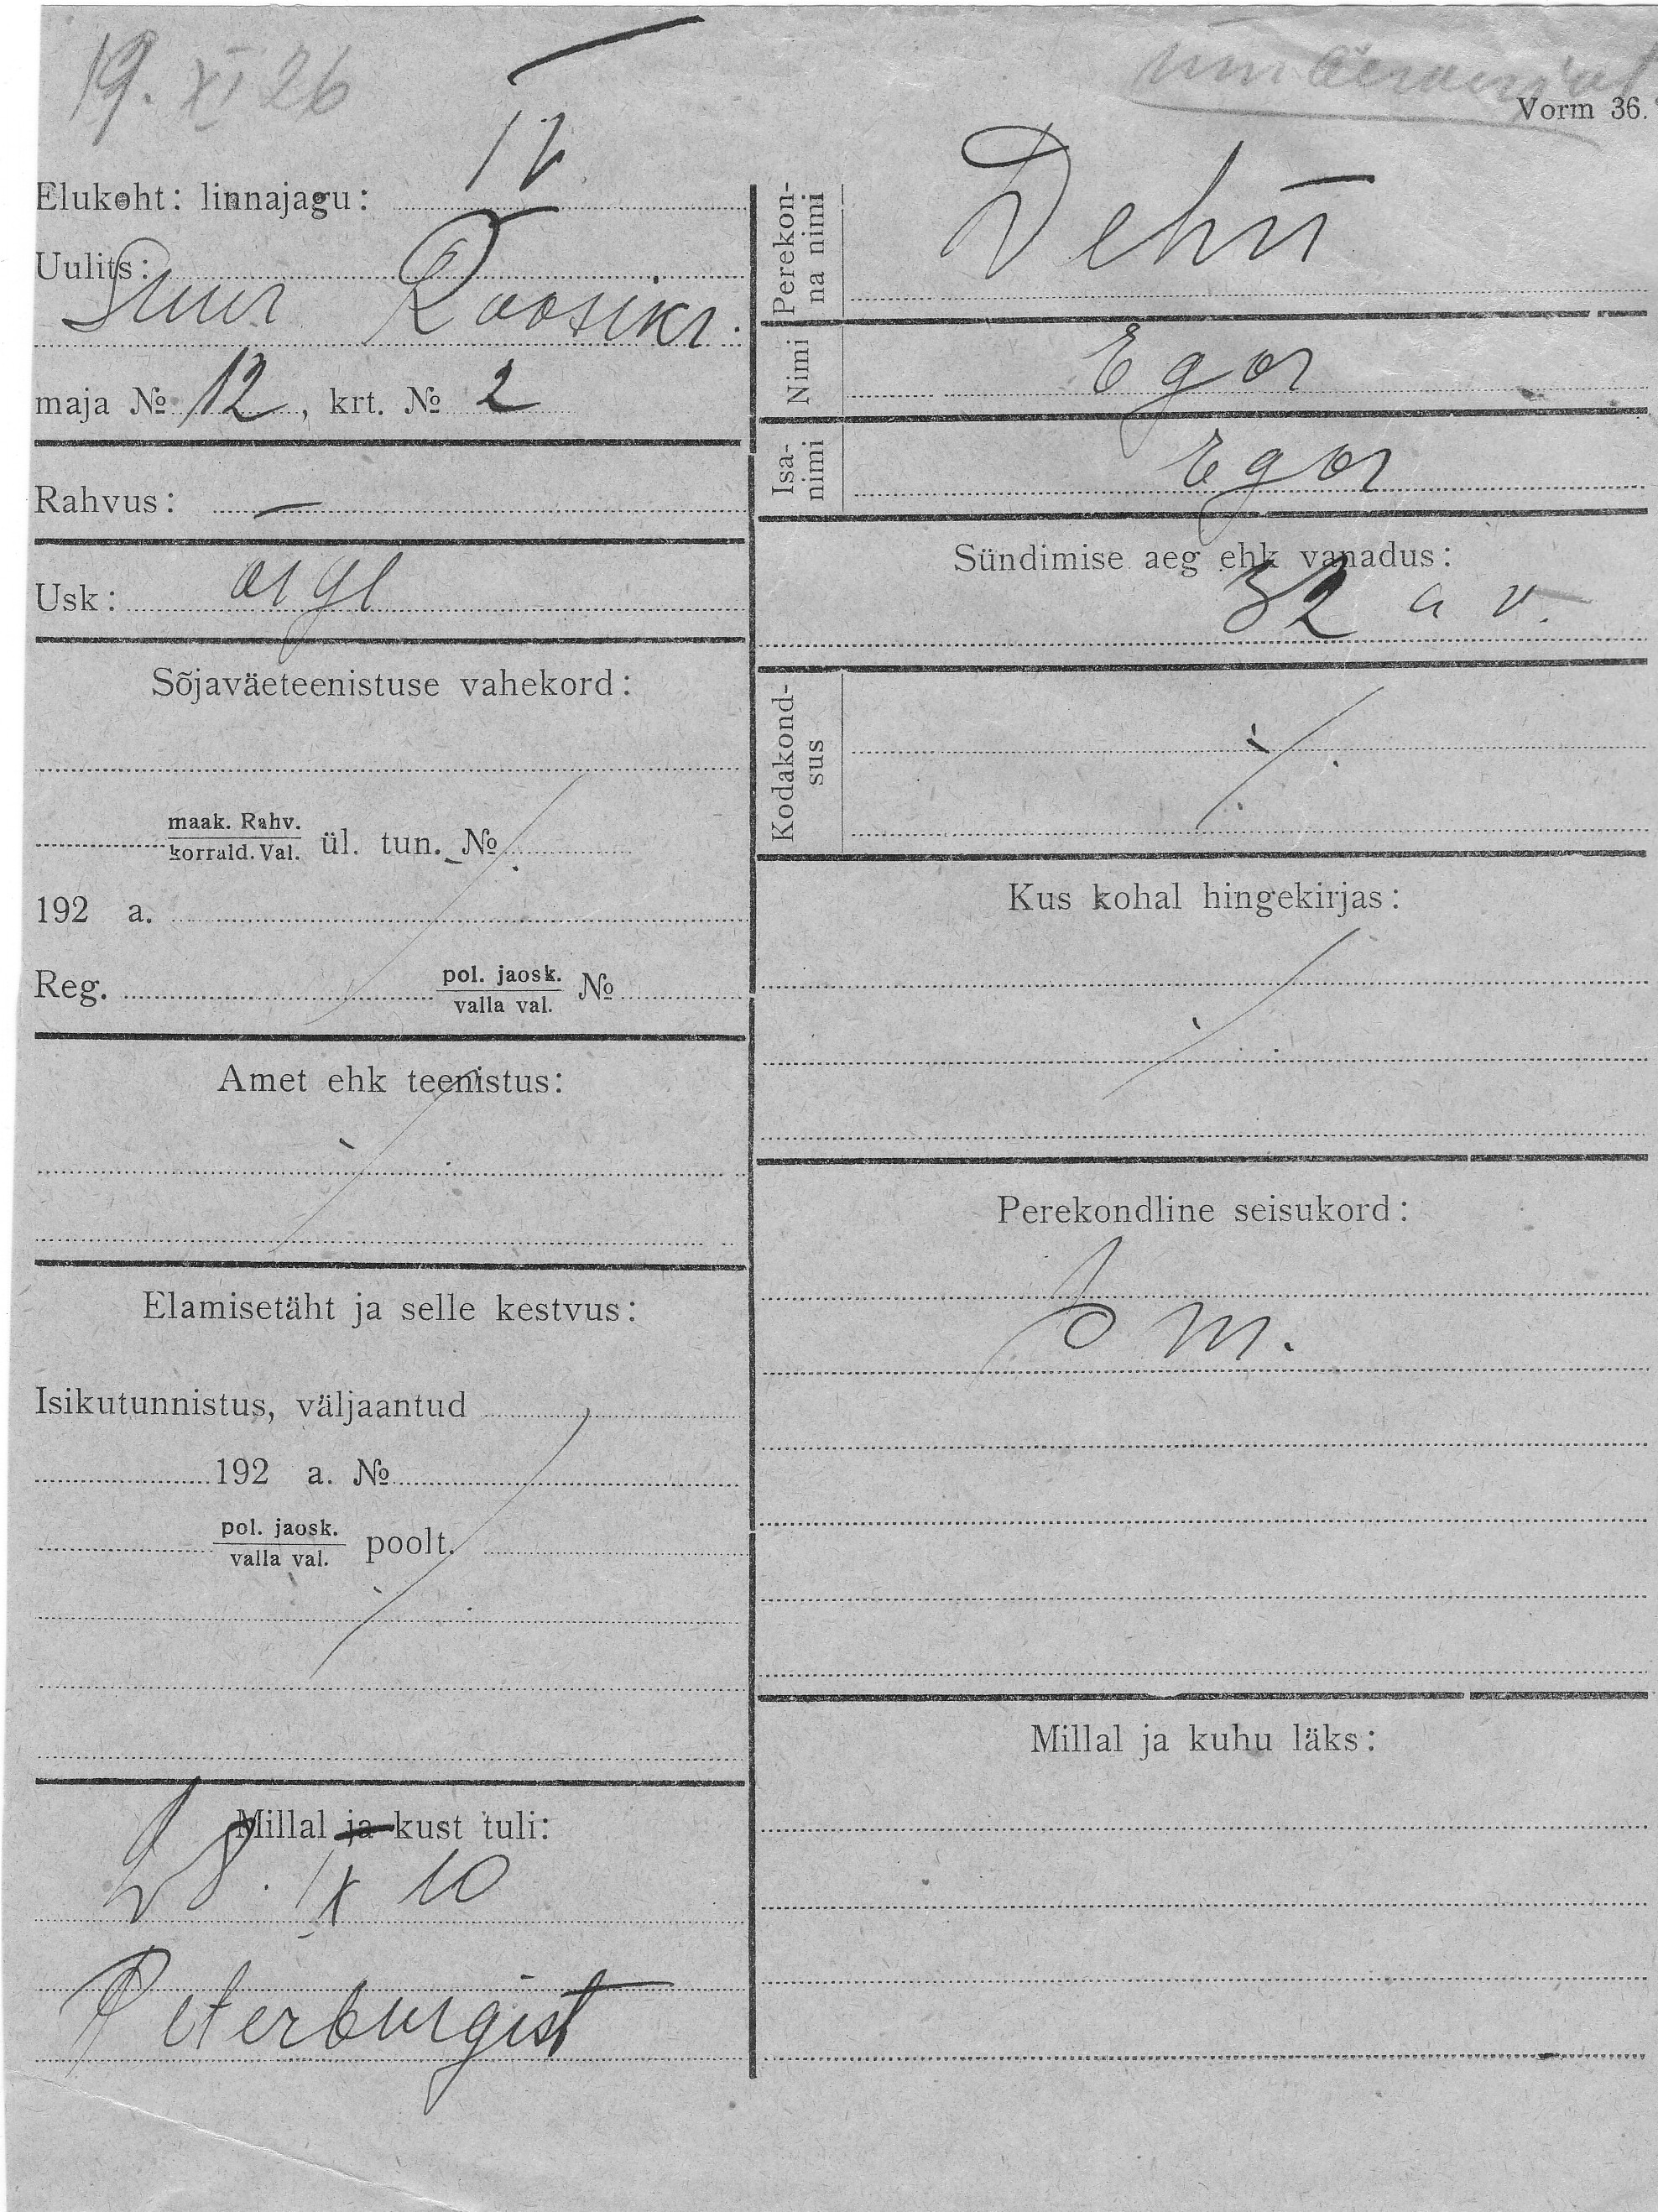 19. XI 26
Vorm 36.
Elukoht: linnajagu: IV
Uulits:
Suur Roosikr.
maja № 12, krt. № 2
Rahvus: —
Usk:
Sõjaväeteenistuse vahekord:
maak. Rahv.
korrald. Val. ül. tun. №
192 a.
Reg. pol. jaosk.
valla val. №
Amet ehk teenistus:
Elamisetäht ja selle kestvus:
Isikutunnistus, väljaantud
192 a. №
pol. jaosk.
valla val. poolt.
Millal ja kust tuli:
28. IX 10
Peterburgist
Perekon-
na nimi
Nimi Egor
Isa-
nimi Egor
Sündimise aeg ehk vanadus:
32 a v.
Kodakond-
sus
Kus kohal hingekirjas:
Perekondline seisukord:
Millal ja kuhu läks: